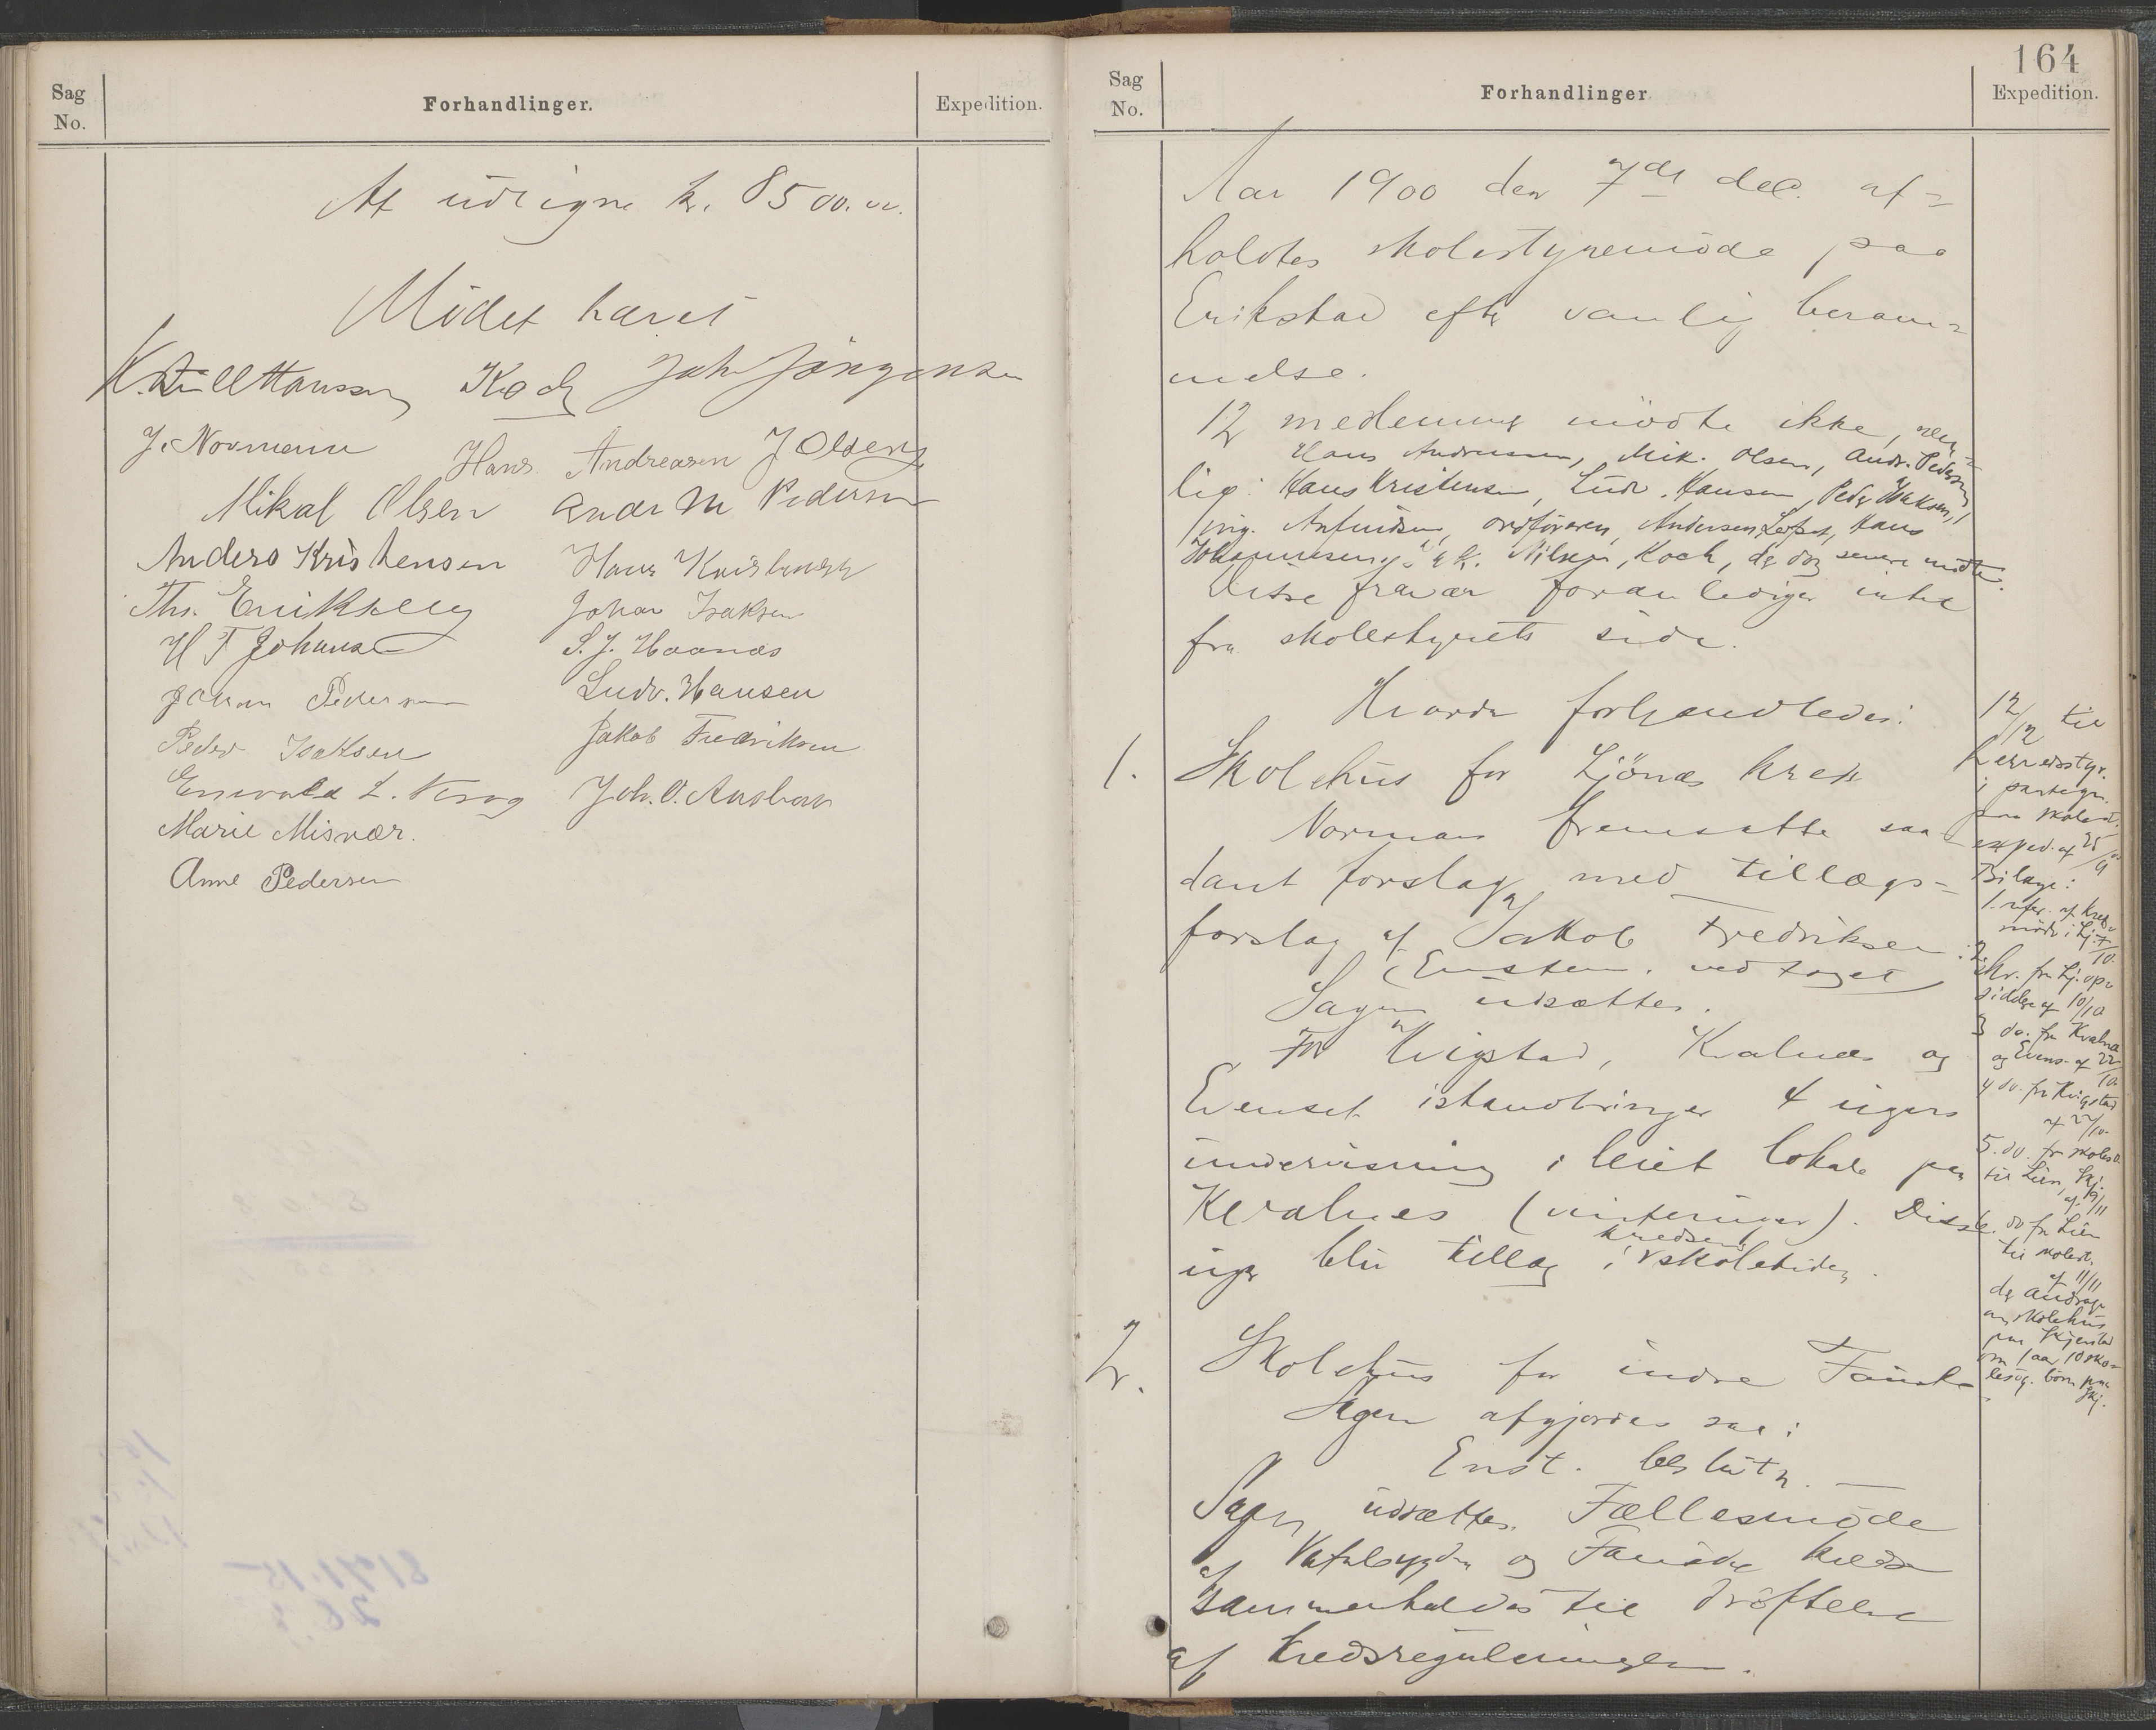 Sag
No.
Forhandlinger.
Expedition.
At udligne kr. 8500.00.
Mödet hævet
K. Hansen Koch Joh Jörgensen
J. Normann Hans Andreasen J Olsen
Mikal Olsen Andr M Pedersen
Anders Kristensen Hans Kristensen
Ths. Eriksen Johan Isaksen
H T Johansen S. J. Haanæs
Johan Pedersen Ludv. Hansen
Peder Isaksen Jakob Fredriksen
Enevold L. Joh. O.
Marie Misvær.
Anne Pedersen
164
Sag
No.
Forhandlinger
Expedition.
Aar 1900 den 7de dec. af=
holdtes skolestyremöde paa
Erikstad efter vanlig beram=
melse.
12 medlemmer mödte ikke, nem=
Hans Andreasen, Mik. Olsen, Andr. Pedersen,
lig: Hans Kristensen, Ludv. Hansen, Peder Isaksen,
ordföreren, Andersen Leifset, Hans
Johannesen, Nilsen, Koch, der dog senere mödte.
Disse fravær foranlediger intet
fra skolestyrets side.
Hvorda forhandledes:
1. Skolehus for Ljönes kreds
Norman fremsatte saa=
dant forslag med tillægs=
forslag af Jakob Fredriksen:
(Enstem. vedtaget)
Sagen udsættes.
For Kvigstad, Kvalnes og
Evenset istandbringes 4 ugers
undervisning i leiet lokale paa
Kvalnes (vinteruger). Disse
uger blir tillæg i kredsens skoletider.
2. Skolehus for indre Fauske
Sagen afgjordes saa:
Enst. beslutn.
Sagen udsættes. Fællesmöde
af Vatnbygden og Fauske kreds
sammenholdes til dröftelse
af kredsreguleringen.
12/12 til
herredsstyr.
i paategn.
paa skolest.
exped. af 25/9
Bilage:
1. refer. af kreds=
möde i Lj. 7/10.
2. skr. fra Lj. op=
siddere af 10/10
3 do. fra Kvalnes
og Evens. af 22/10
4 do. fra Kvigstad
af 22/10
5. do. fr skolest.
til Lien, Skj.
af 9/11
6. do fr Lien
til skolest.
af 11/11
der andrager
om skolehus
paa Skjerstad
om 1 aar 10 sko=
lesög. börn paa
Skj.